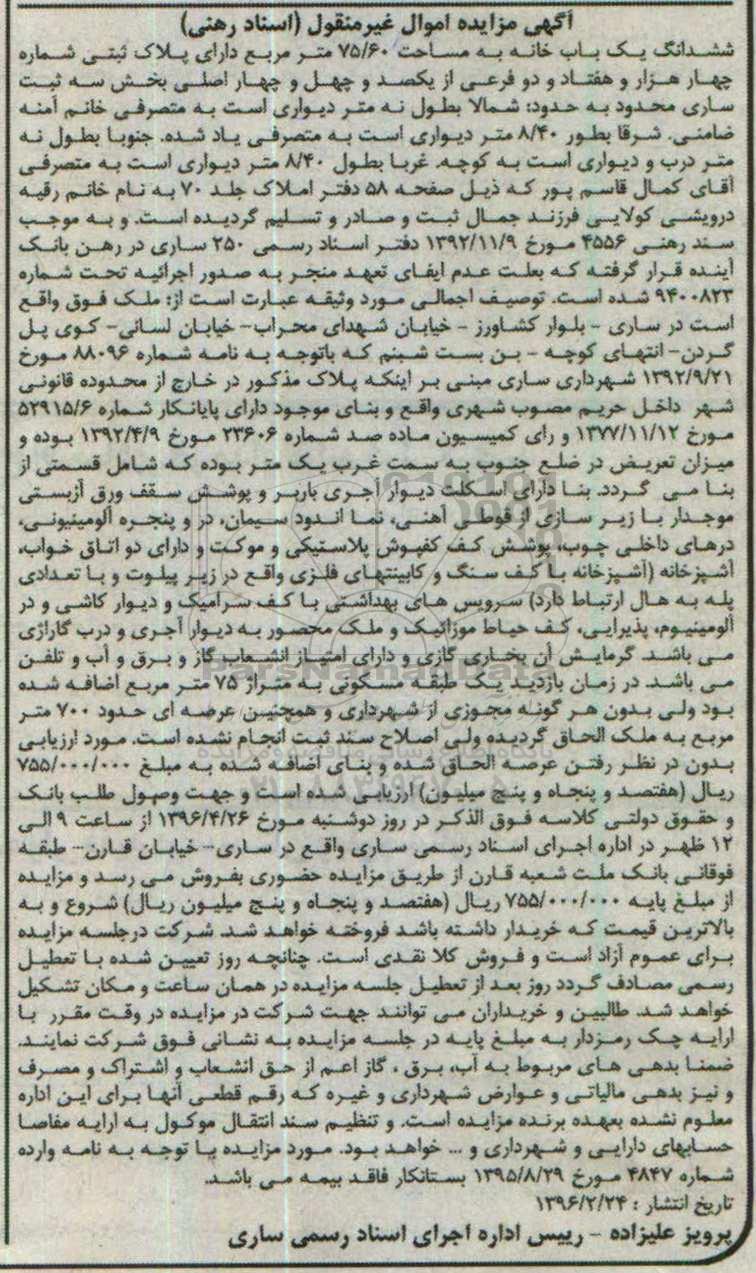 آگهی مزایده اموال غیرمنقول (اسناد رهنی)
ششدانگ یک باب خانه به مساحت ۷۵/۶۰ متر مربع دارای پلاک ثبتی شماره
چهار هزار و هفتاد و دو فرعی از یکصد و چهل و چهار اصلی بخش سه ثبت
ساری محدود به حدود: شمالا بطول نه متر دیواری است به متصرفی خانم آمنه
ضامنی. شرقا بطور ۸/۴۰ متر دیواری است به متصرفی یاد شده. جنوبا بطول نه
متر درب و دیواری است به کوچه. غربا بطول ۸/۴۰ متر دیواری است به متصرفی
آقای کمال قاسم پور که ذیل صفحه ۵۸ دفتر املاک جلد ۷۰ به نام خانم رقیه
درویشی کولایی فرزند جمال ثبت و صادر و تسلیم گردیده است. و به موجب
سند رهنی ۴۵۵۶ مورخ ۱۳۹۲/۱۱/۹ دفتر اسناد رسمی ۲۵۰ ساری در رهن بانک
آینده قرار گرفته که بعلت عدم ایفای تعهد منجر به صدور اجرائیه تحت شماره
۹۴۰۰۸۲۳ شده است. توصیف اجمالی مورد وثیقه عبارت است از: ملک فوق واقع
است در ساری - بلوار کشاورز - خیابان شهدای محراب- خیابان لسانی- کوی پل
گردن- انتهای کوچه - بن بست شبنم که باتوجه به نامه شماره ۸۸۰۹۶ مورخ
۱۳۹۲/۹/۲۱ شهرداری ساری مبنی بر اینکه پلاک مذکور در خارج از محدوده قانونی
شهر داخل حریم مصوب شهری واقع و بنای موجود دارای پایانکار شماره ۵۲۹۱۵/۶
مورخ ۱۳۷۷/۱۱/۱۲ و رای کمیسیون ماده صد شماره ۲۳۶۰۶ مورخ ۱۳۹۲/۴/۹ بوده و
میزان تعریض در ضلع جنوب به سمت غرب یک متر بوده که شامل قسمتی از
بنا می گردد. بنا دارای اسکلت دیوار آجری باربر و پوشش سقف ورق آزبستی
موجدار با زیر سازی از قوطی آهنی، نما اندود سیمان، در و پنجره آلومینیونی،
درهای داخلی چوب، پوشش کف کفپوش پلاستیکی و موکت و دارای دو اتاق خواب،
آشپزخانه (آشپزخانه با کف سنگ و کابینتهای فلزی واقع در زیر پیلوت و با تعدادی
پله به هال ارتباط دارد) سرویس های بهداشتی با کف سرامیک و دیوار کاشی و در
آلومینیوم، پذیرایی، کف حیاط موزائیک و ملک محصور به دیوار آجری و درب گاراژی
می باشد. گرمایش آن بخاری گازی و دارای امتیاز انشعاب گاز و برق و آب و تلفن
می باشد. در زمان بازدید یک طبقه مسکونی به متراژ ۷۵ متر مربع اضافه شده
بود ولی بدون هر گونه مجوزی از شهرداری و همچنین عرصه ای حدود ۷۰۰ متر
مربع به ملک الحاق گردیده ولی اصلاح سند ثبت انجام نشده است. مورد ارزیابی
بدون در نظر رفتن عرصه الحاق شده و بنای اضافه شده به مبلغ ۷۵۵/۰۰۰/۰۰۰
ریال (هفتصد و پنجاه و پنج میلیون) ارزیابی شده است و جهت وصول طلب بانک
و حقوق دولتی کلاسه فوق الذکر در روز دوشنبه مورخ ۱۳۹۶/۴/۲۶ از ساعت ۹ الی
۱۲ ظهر در اداره اجرای اسناد رسمی ساری واقع در ساری- خیابان قارن- طبقه
فوقانی بانک ملت شعبه قارن از طریق مزایده حضوری بفروش می رسد و مزایده
از مبلغ پایه ۷۵۵/۰۰۰/۰۰۰ ریال (هفتصد و پنجاه و پنج میلیون ریال) شروع و به
بالاترین قیمت که خریدار داشته باشد فروخته خواهد شد. شرکت درجلسه مزایده
برای عموم آزاد است و فروش کلا نقدی است. چنانچه روز تعیین شده با تعطیل
رسمی مصادف گردد روز بعد از تعطیل جلسه مزایده در همان ساعت و مکان تشکیل
خواهد شد. طالبین و خریداران می توانند جهت شرکت در مزایده در وقت مقرر با
ارایه چک رمزدار به مبلغ پایه در جلسه مزایده به نشانی فوق شرکت نمایند.
ضمنا بدهی های مربوط به آب، برق ، گاز اعم از حق انشعاب و اشتراک و مصرف
و نیز بدهی مالیاتی و عوارض شهرداری و غیره که رقم قطعی آنها برای این اداره
معلوم نشده بعهده برنده مزایده است. و تنظیم سند انتقال موکول به ارایه مفاصا
حسابهای دارایی و شهرداری و ... خواهد بود. مورد مزایده با توجه به نامه وارده
شماره ۴۸۴۷ مورخ ۱۳۹۵/۸/۲۹ بستانکار فاقد بیمه می باشد.
تاریخ انتشار : ۱۳۹۶/۲/۲۴
پرویز علیزاده - رییس اداره اجرای اسناد رسمی ساری